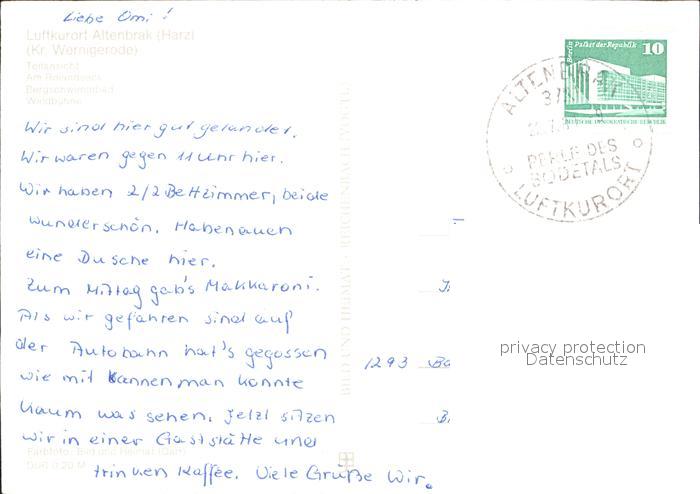 Liebe Omi!
Luftkurort Altenbrak (Harz)
(Kr. Wernigerode)
Teilansicht
Am Rolandseck
Bergschwimmbad
Waldbühne
Wir sind hier gut gelandet.
Wir waren gegen 11 Uhr hier.
Wir haben 2/2 Bettzimmer, beide
wunderschön. Haben auch
eine Dusche hier.
Zum Mittag gab's Makkaroni.
Als wir gefahren sind auf
der Autobahn hat's gegossen
wie mit Kannen, man konnte
kaum was sehen. Jetzt sitzen
wir in einer Gaststätte und
trinken Kaffee. Viele Grüße Wir.
Farbfoto: Bild und Heimat (Darr)
BILD UND HEIMAT · REICHENBACH
Berlin Palast der Republik 10
DEUTSCHE DEMOKRATISCHE REPUBLIK
ALTENBRAK
PERLE DES
BODETALS
LUFTKURORT
1293 Ba
B
privacy protection
Datenschutz